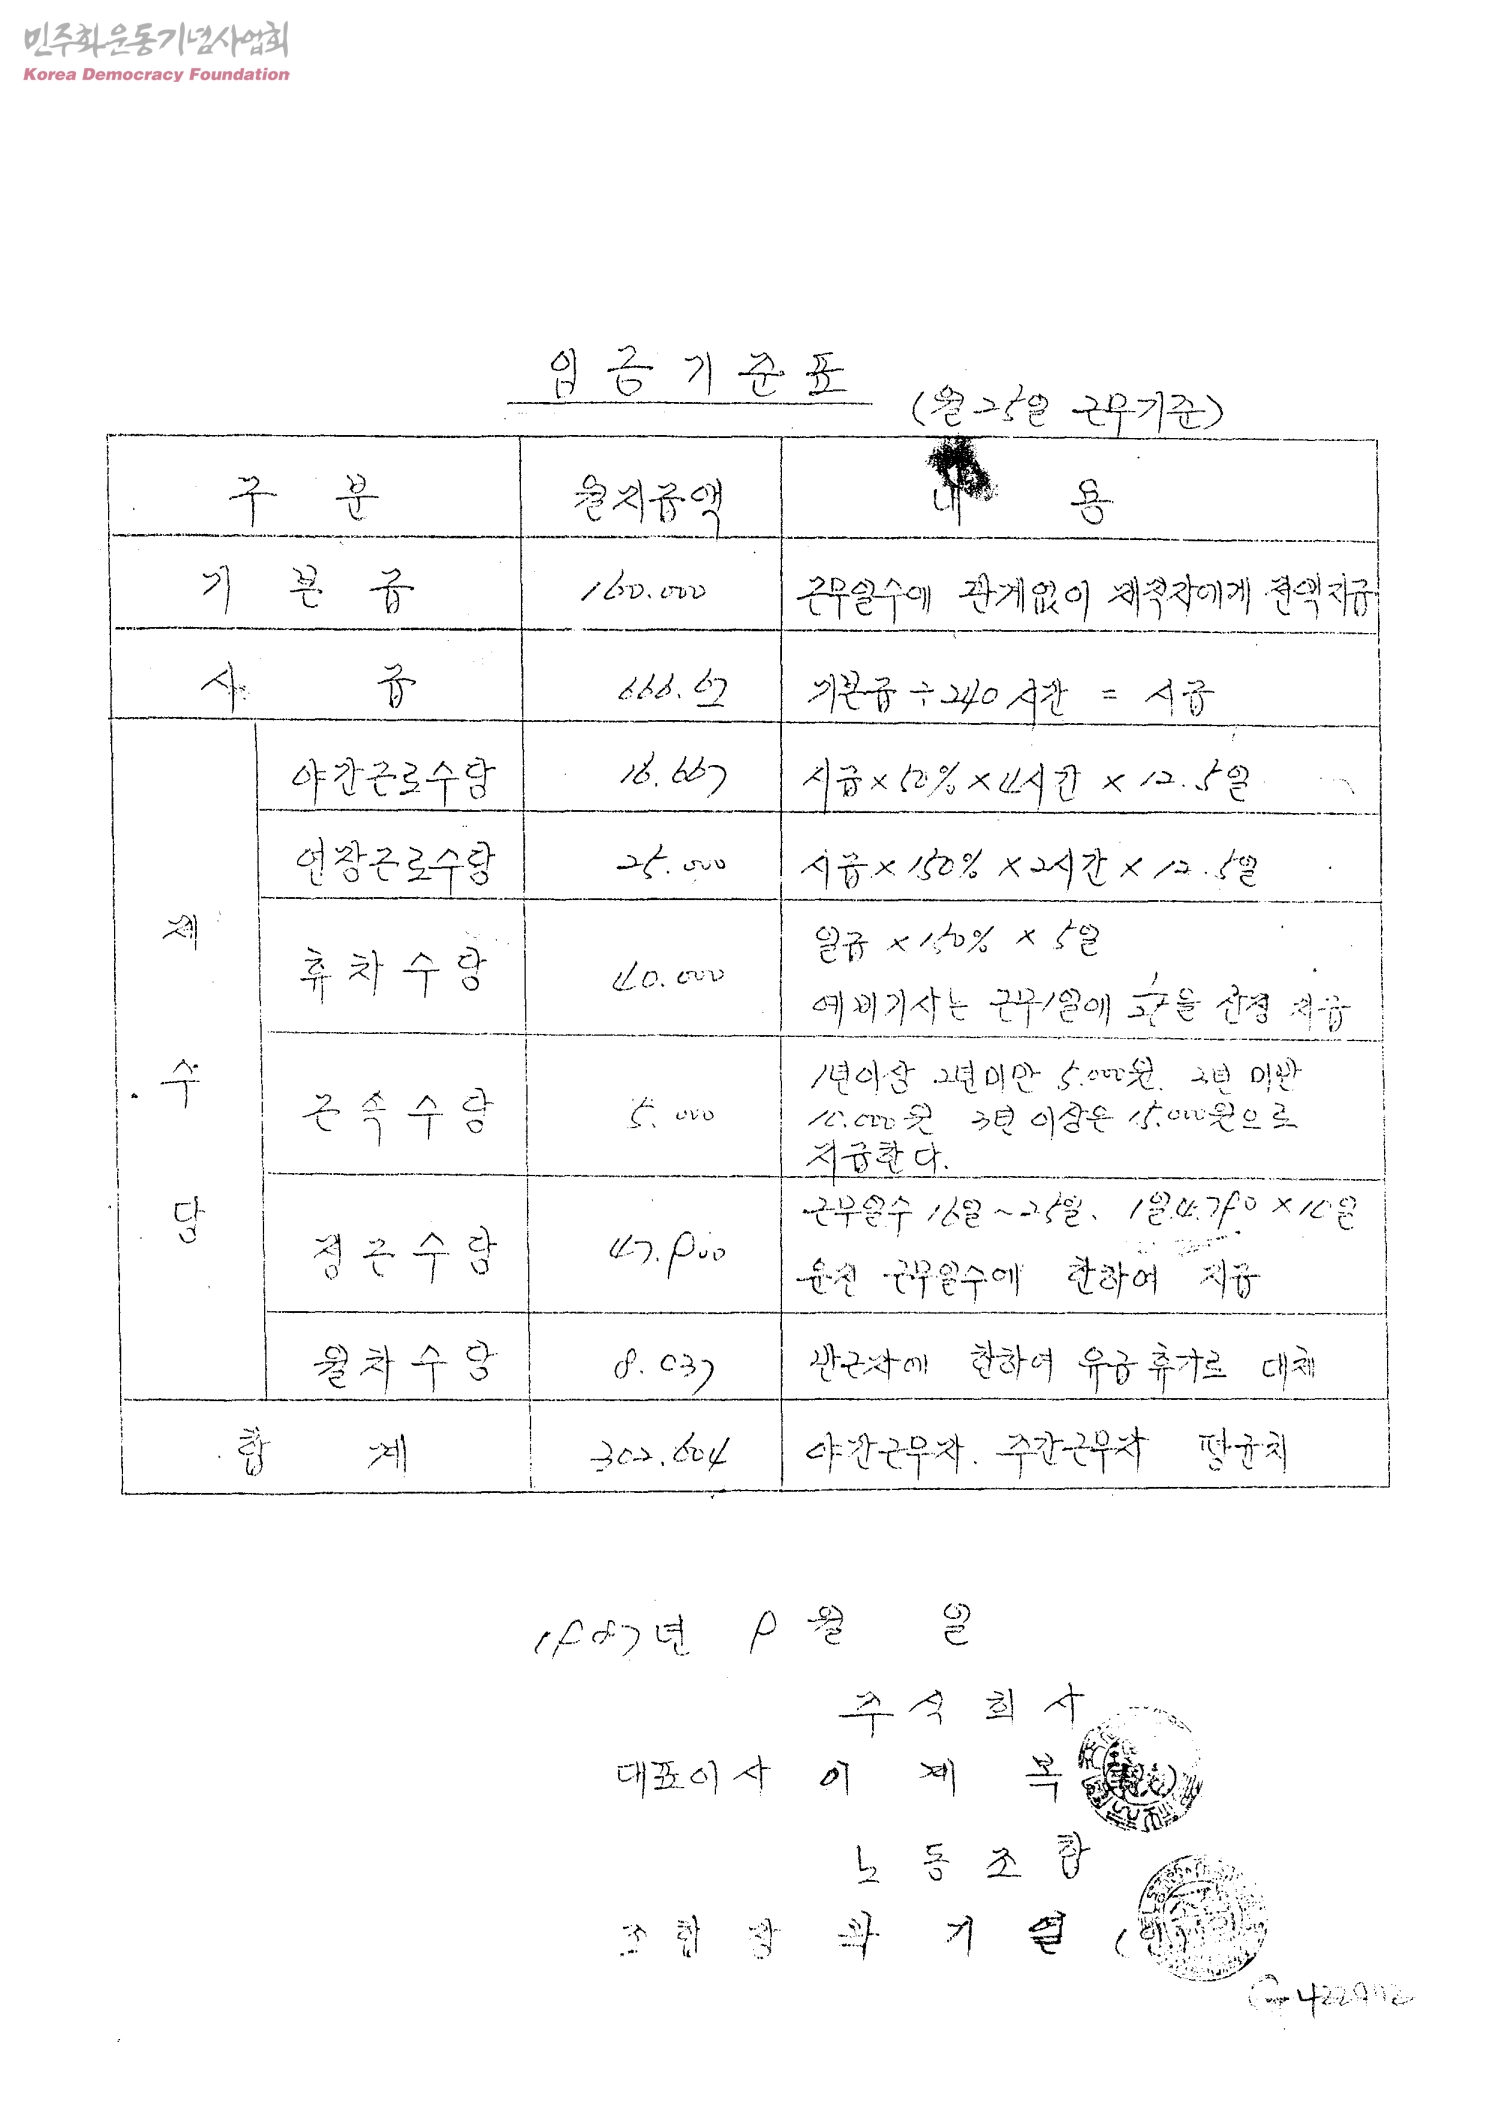 민주화운동기념사업회
Korea Democracy Foundation
임금기준표
(월 25일 근무기준)
구 분 월지급액 내 용
기 본 급 160.000 근무일수에 관계없이 재적자에게 전액지급
시 급 666.67 기본급 ÷ 240 시간 = 시급
제 수 당
야간근로수당 16.667 시급 × 50% × 4시간 × 12.5일
연장근로수당 25.000 시급 × 150% × 2시간 × 12.5일
휴차수당 40.000 일급 × 150% × 5일
예비기사는 근무1일에 을 산정 지급
근속수당 5.000 1년이상 2년미만 5.000원. 3년 미만
10.000원 3년 이상은 15.000원으로
지급한다.
정근수당 47.900 근무일수 16일~25일. 1일 4.790 × 10일
운전 근무일수에 한하여 지급
월차수당 8.037 만근자에 한하여 유급휴가로 대체
합 계 302.604 야간근무자. 주간근무자 평균치
1987년 9월 일
주식회사
대표이사 이 제 복
노동조합
조합장 곽 기 열 (인)